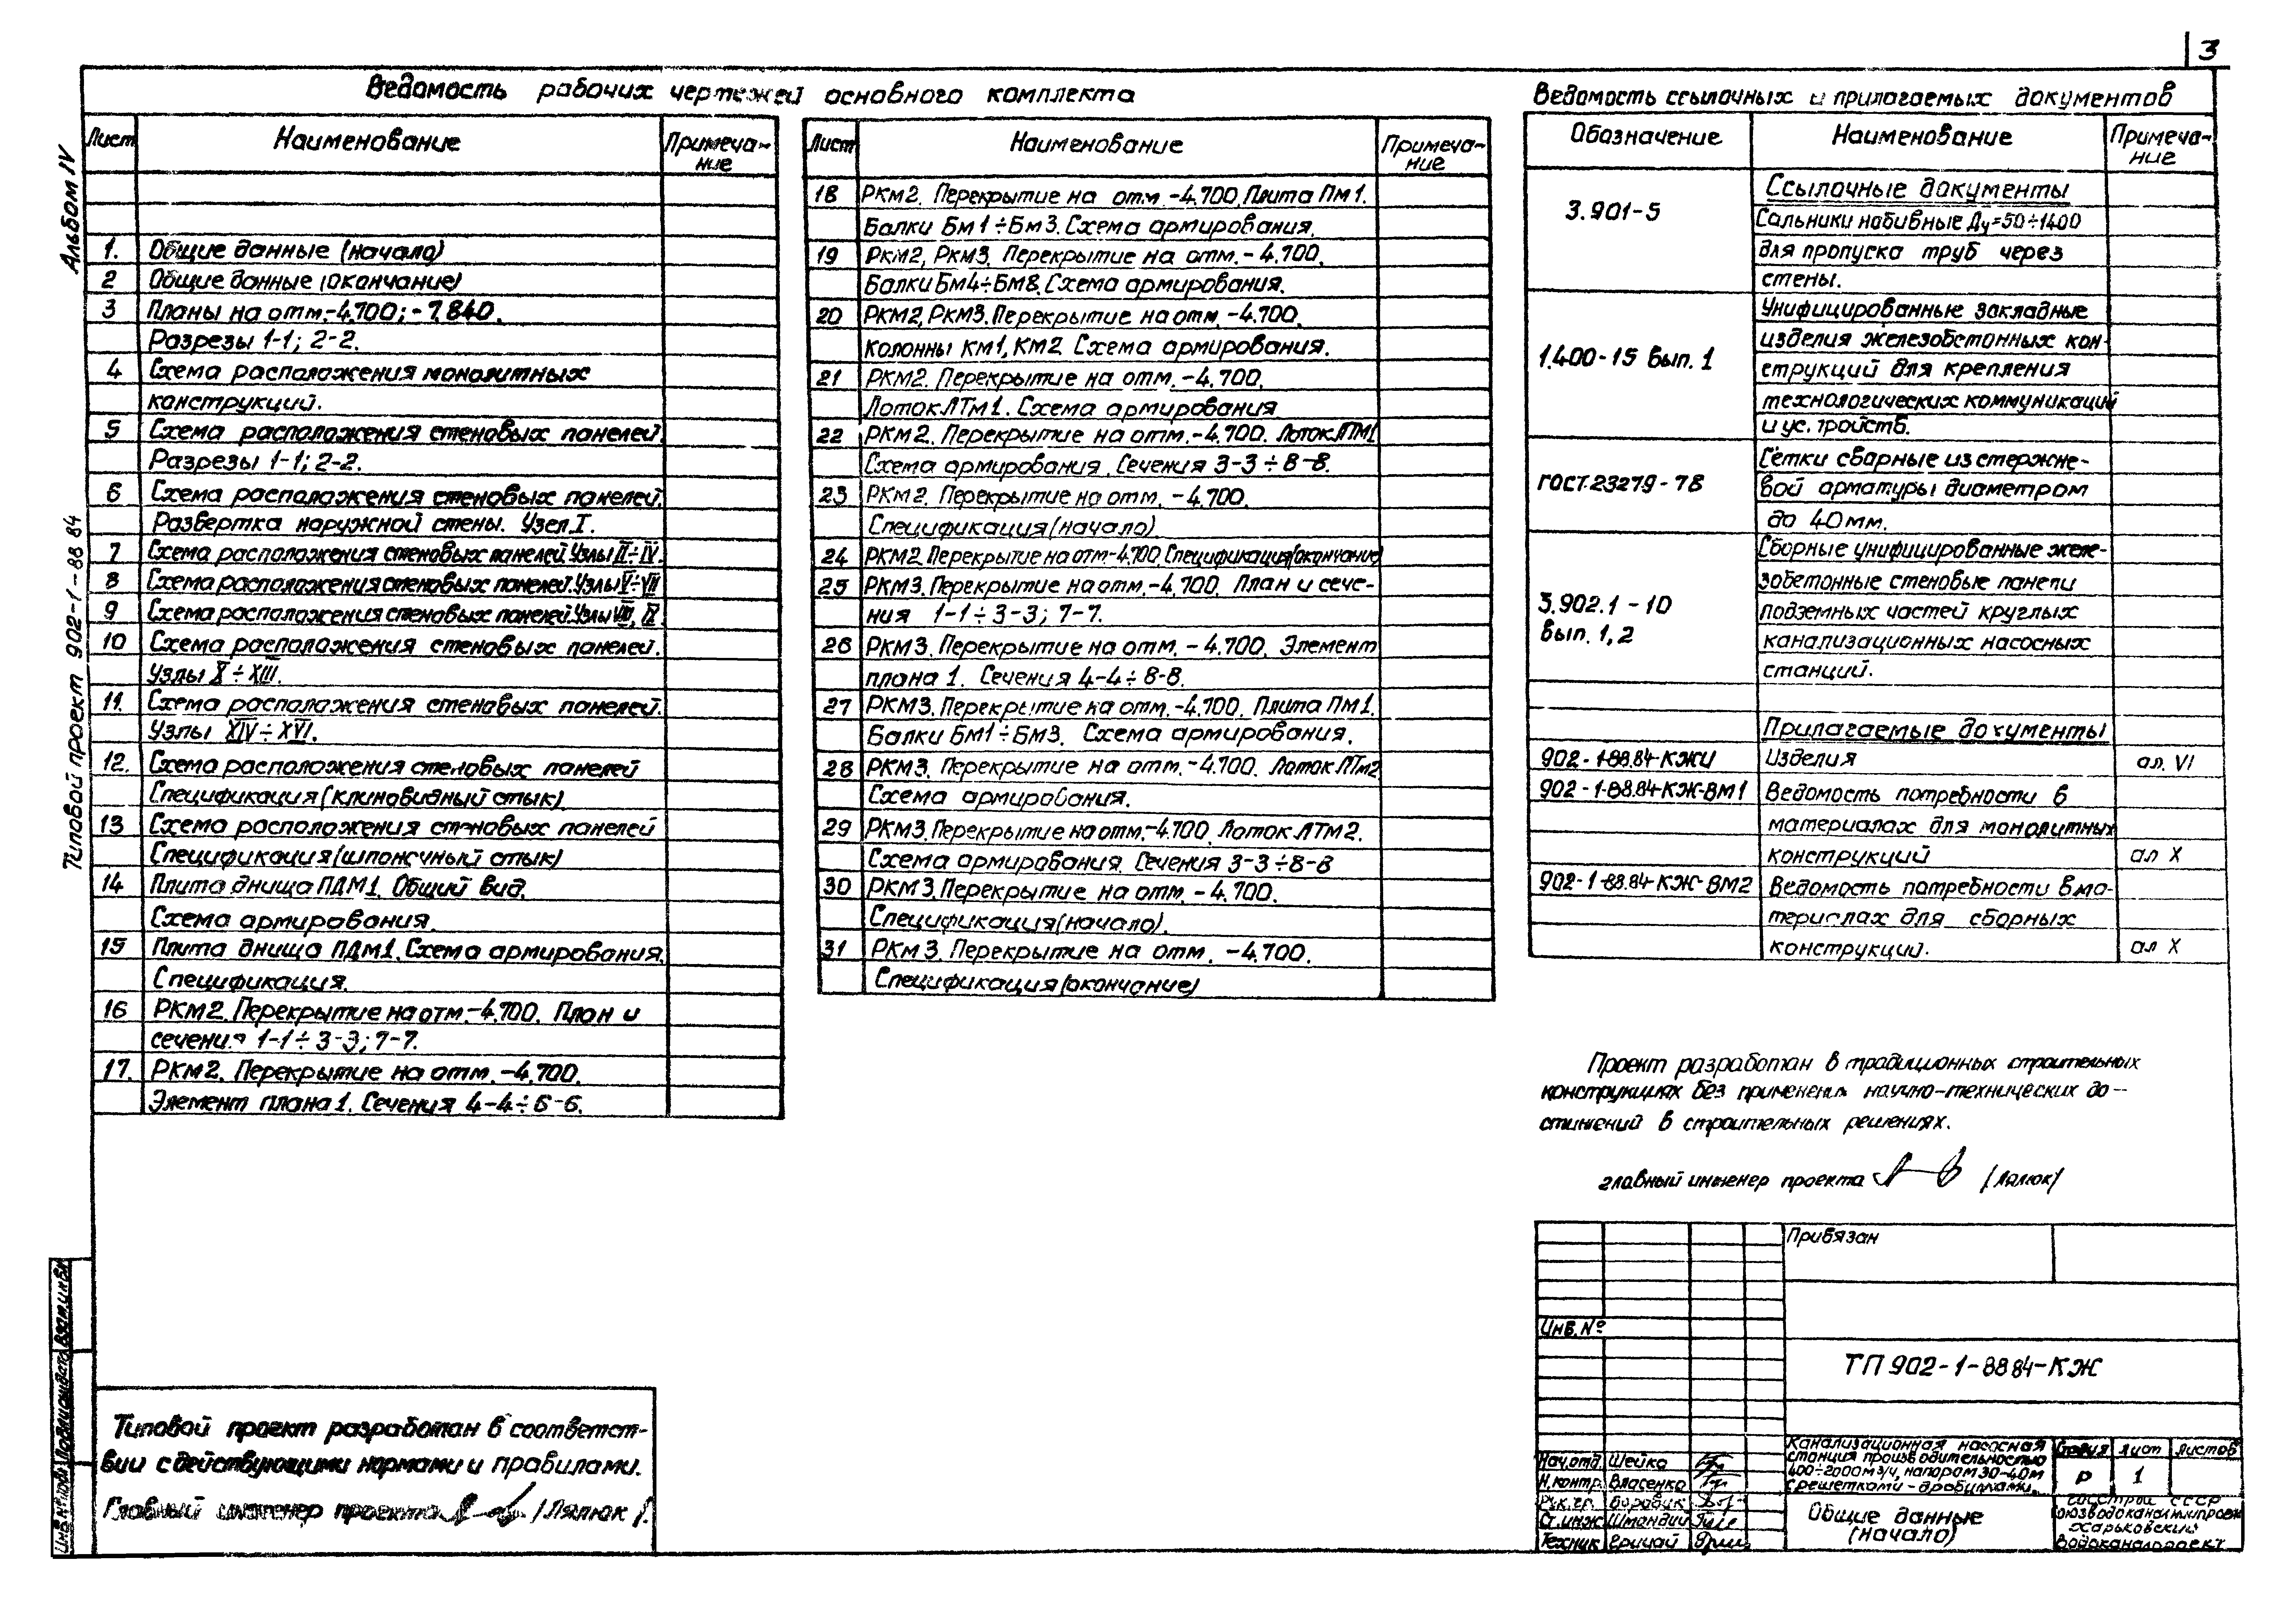 3
Альбом IV
Типовой проект 902-1-88 84
Ведомость рабочих чертежей основного комплекта
Лист Наименование Примеча-
ние
1. Общие данные (начало)
2 Общие данные (окончание)
3 Планы на отм.-4.700; -7.840.
Разрезы 1-1; 2-2.
4 Схема расположения монолитных
конструкций.
5 Схема расположения стеновых панелей.
Разрезы 1-1; 2-2.
6 Схема расположения стеновых панелей.
Развертка наружной стены. Узел I.
7 Схема расположения стеновых панелей Узлы II÷IV.
8 Схема расположения стеновых панелей. Узлы V÷VII
9 Схема расположения стеновых панелей. Узлы VIII, IX.
10 Схема расположения стеновых панелей.
Узлы X÷XIII.
11. Схема расположения стеновых панелей.
Узлы XIV÷XVI.
12. Схема расположения стеновых панелей
Спецификация (клиновидный стык)
13 Схема расположения стеновых панелей
Спецификация (шпоночный стык)
14 Плита днища ПДМ1. Общий вид.
Схема армирования.
15 Плита днища ПДм1. Схема армирования.
Спецификация.
16 РКм2. Перекрытие на отм.-4.700. План и
сечения 1-1÷3-3; 7-7.
17. РКм2. Перекрытие на отм. -4.700.
Элемент плана 1. Сечения 4-4÷6-6.
Лист Наименование Примеча-
ние
18 РКм2. Перекрытие на отм. -4.700. Плита Пм1.
Балки Бм1÷Бм3. Схема армирования.
19 РКм2, РКм3. Перекрытие на отм. -4.700.
Балки Бм4÷Бм8. Схема армирования.
20 РКм2, РКм3. Перекрытие на отм. -4.700.
Колонны Км1, Км2 Схема армирования.
21 РКм2. Перекрытие на отм. -4.700.
Лоток ЛТм1. Схема армирования
22 РКм2. Перекрытие на отм. -4.700. Лоток ЛТМ1
Схема армирования. Сечения 3-3÷8-8.
23 РКм2. Перекрытие на отм. -4.700.
Спецификация (начало)
24 РКм2 Перекрытие на отм-4.700 Спецификация (окончание)
25 РКм3. Перекрытие на отм.-4.700. План и сече-
ния 1-1÷3-3; 7-7.
26 РКм3. Перекрытие на отм. -4.700. Элемент
плана 1. Сечения 4-4÷8-8.
27 РКм3. Перекрытие на отм.-4.700. Плита Пм1.
Балки Бм1÷Бм3. Схема армирования.
28 РКм3. Перекрытие на отм. -4.700. Лоток ЛТм2
Схема армирования.
29 РКм3. Перекрытие на отм.-4.700. Лоток ЛТм2.
Схема армирования. Сечения 3-3÷8-8
30 РКм3. Перекрытие на отм. -4.700.
Спецификация (начало).
31 РКм3. Перекрытие на отм. -4.700.
Спецификация (окончание)
Ведомость ссылочных и прилагаемых документов
Обозначение Наименование Примеча-
ние
Ссылочные документы
3.901-5 Сальники набивные Ду=50÷1400
для пропуска труб через
стены.
1.400-15 вып. 1 Унифицированные закладные
изделия железобетонных кон-
струкций для крепления
технологических коммуникаций
и устройств.
ГОСТ.23279-78 Сетки сварные из стержне-
вой арматуры диаметром
до 40 мм.
3.902.1-10 вып. 1,2 Сборные унифицированные желе-
зобетонные стеновые панели
подземных частей круглых
канализационных насосных
станций.
Прилагаемые документы
902-1-88.84-КЖИ Изделия ал. VI
902-1-88.84-КЖ-ВМ1 Ведомость потребности в
материалах для монолитных
конструкций ал X
902-1-88.84-КЖ-ВМ2 Ведомость потребности в ма-
териалах для сборных
конструкций. ал X
Проект разработан в традиционных строительных
конструкциях без применения научно-технических до-
стижений в строительных решениях.
главный инженер проекта /Лялюк/
Типовой проект разработан в соответст-
вии с действующими нормами и правилами.
Главный инженер проекта /Лялюк/.
Инв.№подл Подпись и дата Взам.инв.№
Привязан
Инв. №
ТП 902-1-88 84-КЖ
Нач.отд. Шейко
Н.контр. Власенко
Рук.гр. Боровик
Ст.инж Шмандий
Техник Грицай
Канализационная насосная
станция производительностью
400÷2000м3/ч, напором 30-40м
с решетками-дробилками.
Стадия Лист Листов
Р 1
Общие данные
(начало)
Госстрой СССР
Союзводоканалниипроект
Харьковский
Водоканалпроект